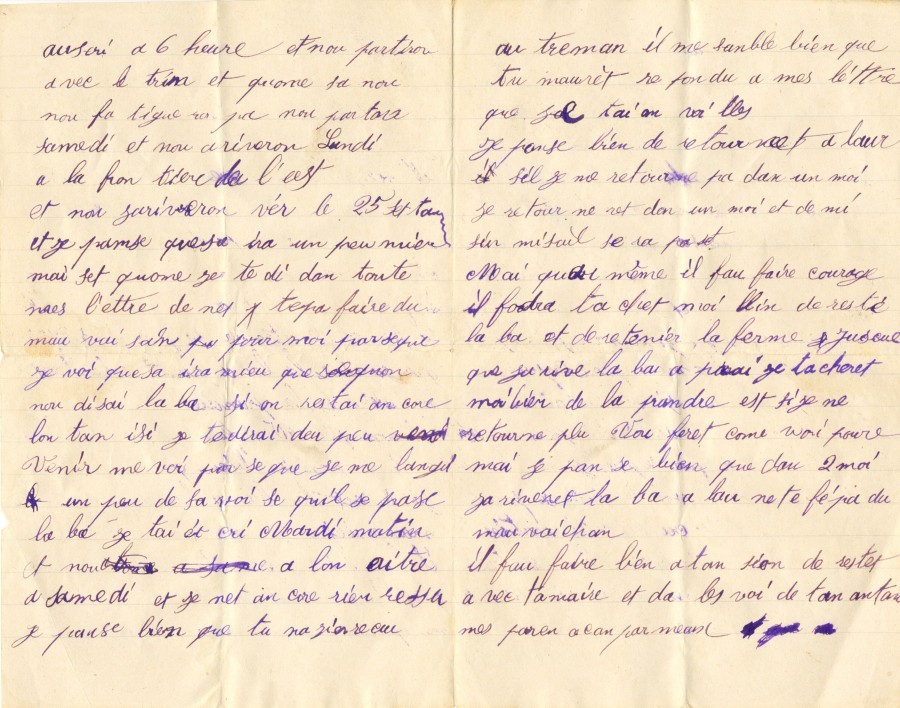 aussi a 6 heure et nou partiron
avec le trin et quome sa nou
nou fatigue ra pa nou partons
samedi et nou ariveron Lundi
a la fron tiere de l'est
et nou sariveron vér le 25 set
et je pamse quesa ira un peu mieu
mai set quome je te di dan toute
mes l'ettre de net te pa faire du
mau vai san pour moi parseque
je voi quesa ira mieu que
nou disai la ba si on restai an core
lon tan isi je tedirai deu peu
venir me voi par se que je me langui
un peu de sa voi se quil se pase
la ba je tai ét cri Mardi matin
et nou a lon aitre
a samedi et je net an core rien ressu
je panse bien que tu na
au treman il me sanble bien que
tu maurèt re pondu a mes lèttre
que je tai an voi lles
je panse bien de retournet a laur
sil je ne retourne pa dan un moi
je retour ne ret dan un moi et de mi
sur misail se ra pase
Mai quan même il fau faire courage
il fodra ta chet moi llin de resté
la ba et de retenier la ferme jusque
que jarive la ba a je tacheret
moibier de la prandre est si je ne
retourne plu Vou feret come voi poure
mai je pan se bien que dan 2 moi
jariveret la ba a lau ne te fé pa du
mauvaichan
il fau faire bien atan sion de restet
avec tamaire et da les voi de tan antan
mes paren